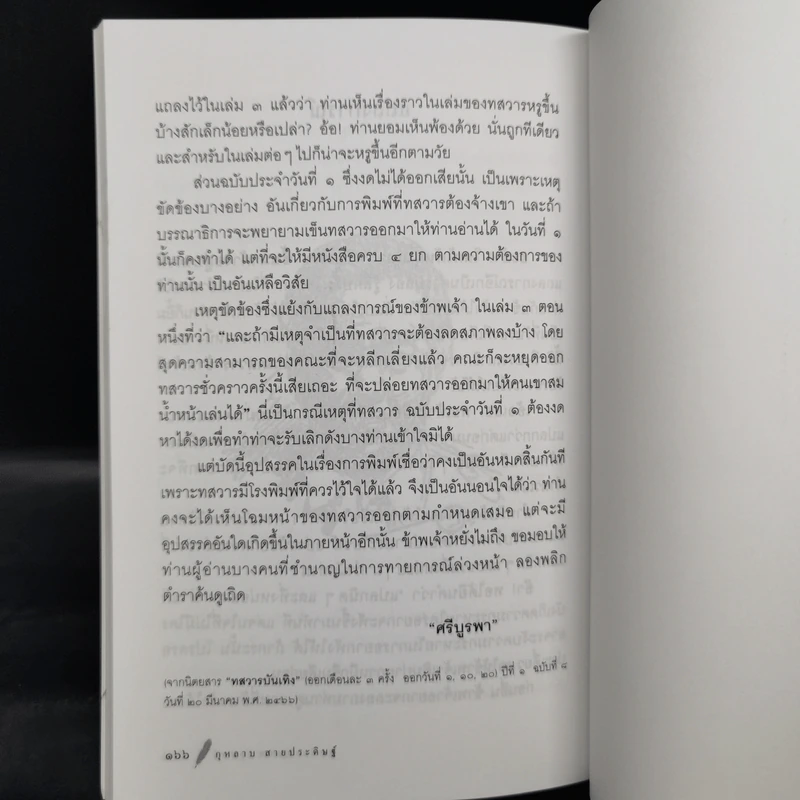 แถลงไว้ในเล่ม ๓ แล้วว่า ท่านเห็นเรื่องราวในเล่มของทสวารหรูขึ้น
บ้างสักเล็กน้อยหรือเปล่า? อ้อ! ท่านยอมเห็นพ้องด้วย นั่นถูกทีเดียว
และสำหรับในเล่มต่อๆ ไปก็น่าจะหรูขึ้นอีกตามวัย
ส่วนฉบับประจำวันที่ ๑ ซึ่งงดไม่ได้ออกเสียนั้น เป็นเพราะเหตุ
ขัดข้องบางอย่าง อันเกี่ยวกับการพิมพ์ที่ทสวารต้องจ้างเขา และถ้า
บรรณาธิการจะพยายามเข็นทสวารออกมาให้ท่านอ่านได้ ในวันที่ ๑
นั้นก็คงทำได้ แต่ที่จะให้มีหนังสือครบ ๔ ยก ตามความต้องการของ
ท่านนั้น เป็นอันเหลือวิสัย
เหตุขัดข้องซึ่งแย้งกับแถลงการณ์ของข้าพเจ้า ในเล่ม ๓ ตอน
หนึ่งที่ว่า "และถ้ามีเหตุจำเป็นที่ทสวารจะต้องลดสภาพลงบ้าง โดย
สุดความสามารถของคณะที่จะหลีกเลี่ยงแล้ว คณะก็จะหยุดออก
ทสวารชั่วคราวครั้งนี้เสียเถอะ ที่จะปล่อยทสวารออกมาให้คนเขาสม
น้ำหน้าเล่นได้" นี่เป็นกรณีเหตุที่ทสวาร ฉบับประจำวันที่ ๑ ต้องงด
หาได้งดเพื่อทำท่าจะรับเลิกดังบางท่านเข้าใจมิได้
แต่บัดนี้อุปสรรคในเรื่องการพิมพ์เชื่อว่าคงเป็นอันหมดสิ้นกันที
เพราะทสวารมีโรงพิมพ์ที่ควรไว้ใจได้แล้ว จึงเป็นอันนอนใจได้ว่า ท่าน
คงจะได้เห็นโฉมหน้าของทสวารออกตามกำหนดเสมอ แต่จะมี
อุปสรรคอันใดเกิดขึ้นในภายหน้าอีกนั้น ข้าพเจ้าหยั่งไม่ถึง ขอมอบให้
ท่านผู้อ่านบางคนที่ชำนาญในการทายการณ์ล่วงหน้า ลองพลิก
ตำราค้นดูเถิด
"ศรีบูรพา"
(จากนิตยสาร "ทสวารบันเทิง" (ออกเดือนละ ๓ ครั้ง ออกวันที่ ๑, ๑๐, ๒๐) ปีที่ ๑ ฉบับที่ ๘
วันที่ ๒๐ มีนาคม พ.ศ. ๒๔๖๖)
๑๖๖ กุหลาบ สายประดิษฐ์